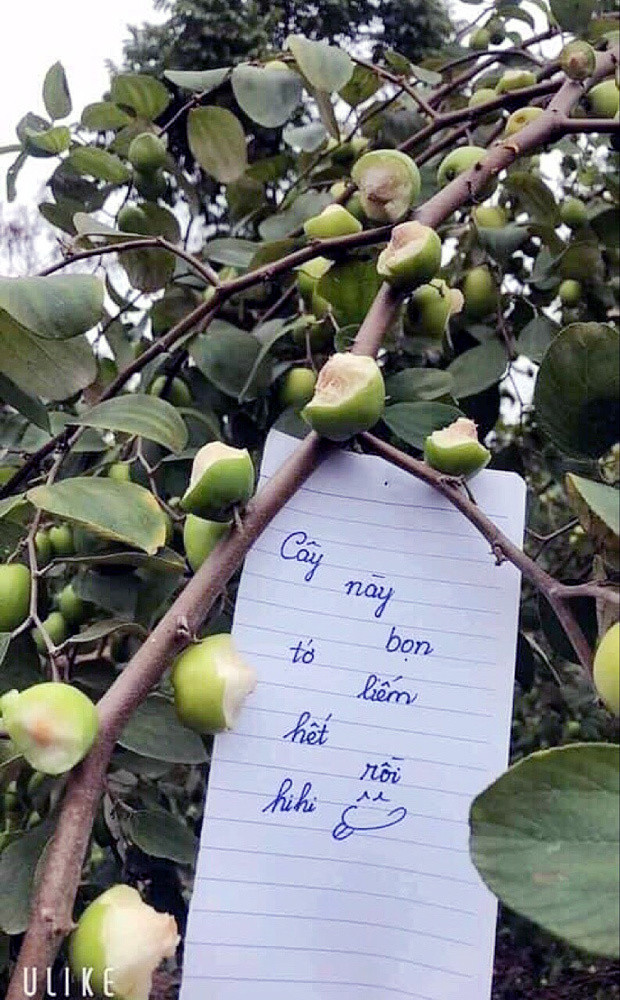 Cây
này
bọn
tớ
liếm
hết
rồi
hihi
ULIKE